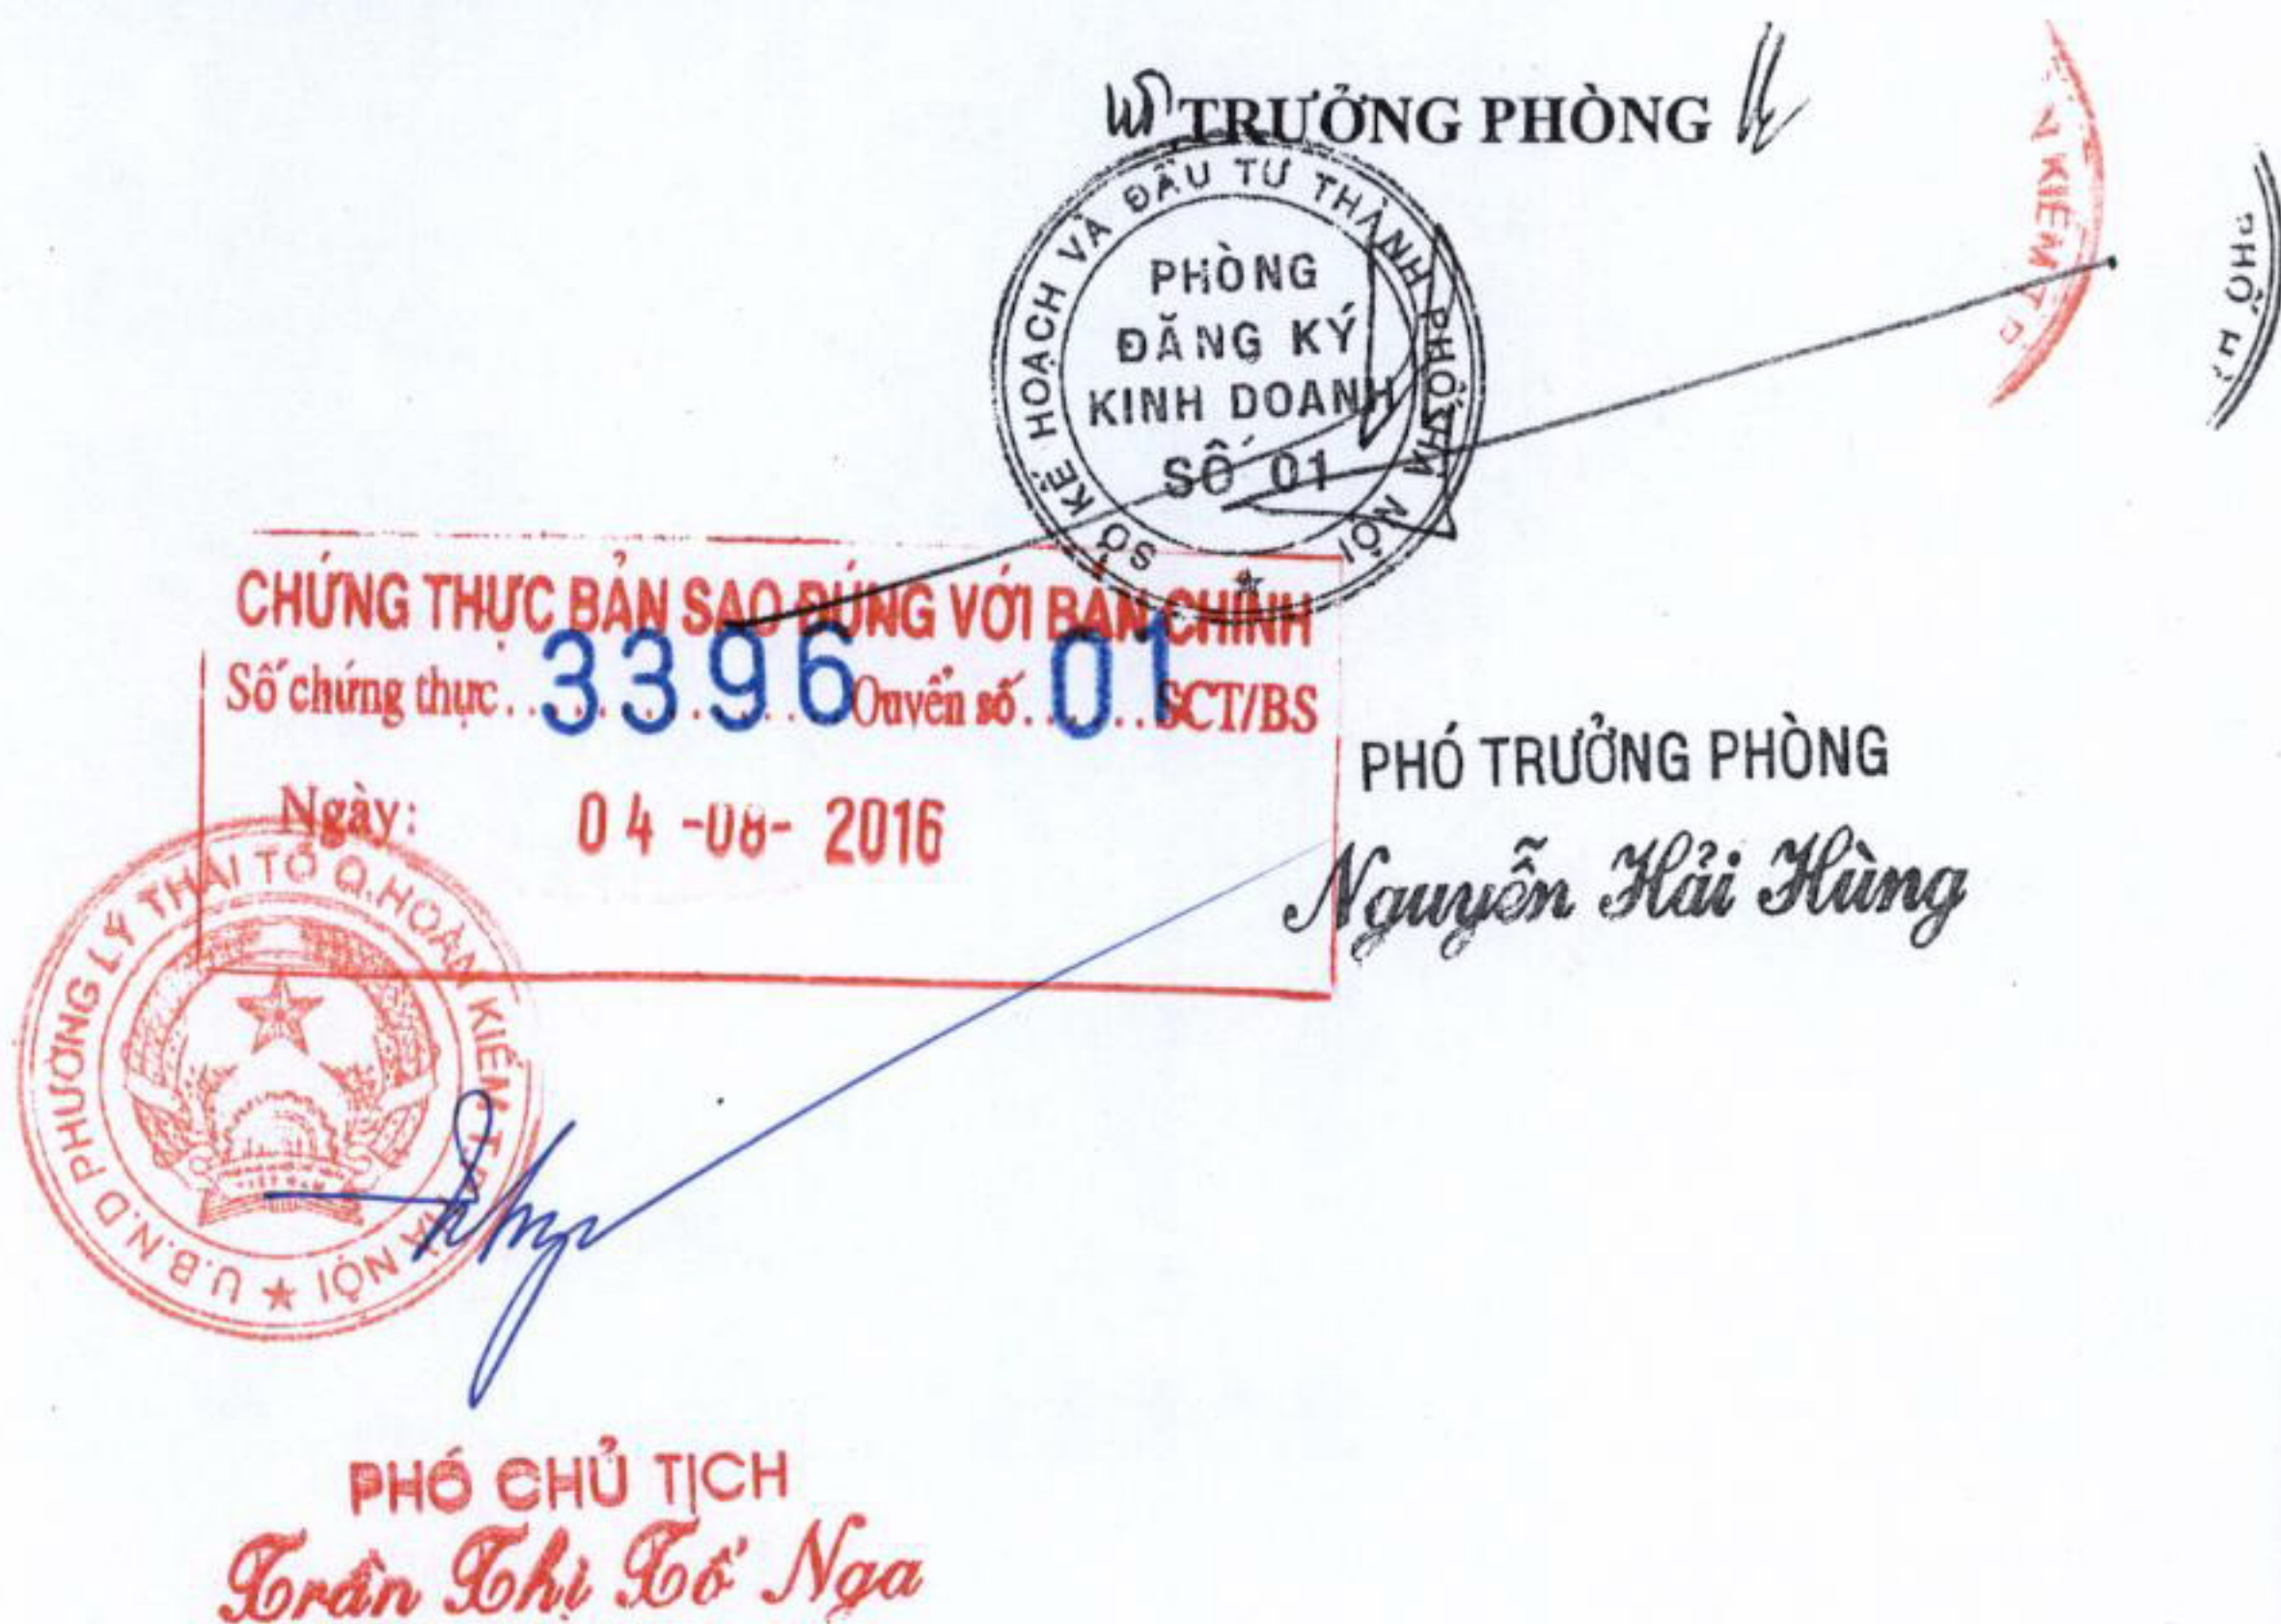 TRƯỞNG PHÒNG
SỞ KẾ HOẠCH VÀ ĐẦU TƯ THÀNH PHỐ HÀ NỘI
PHÒNG
ĐĂNG KÝ
KINH DOANH
SỐ 01
KIẾM
PHỐ
CHỨNG THỰC BẢN SAO ĐÚNG VỚI BẢN CHÍNH
Số chứng thực 3396 Quyển số 01 SCT/BS
Ngày: 04 -08- 2016
PHÓ TRƯỞNG PHÒNG
Nguyễn Hải Hùng
U.B.N.D PHƯỜNG LÝ THÁI TỔ Q.HOÀN KIẾM T.P HÀ NỘI
VIỆT NAM
PHÓ CHỦ TỊCH
Trần Thị Tố Nga